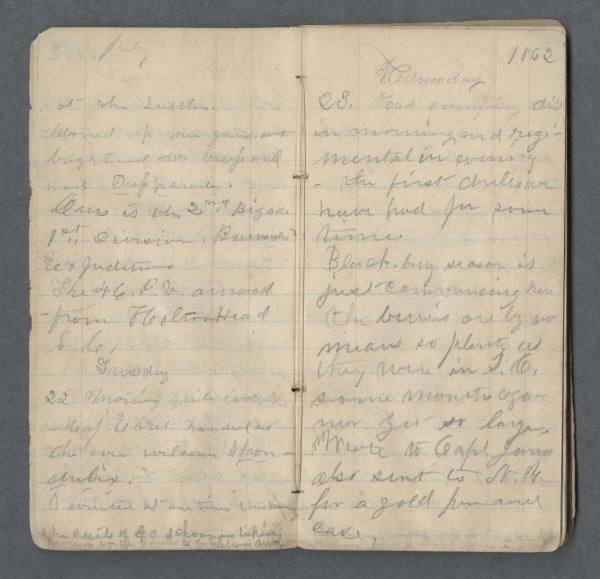 July
at the
cleaned up our guns, and
brightened our brass and
went Dressparade.
Ours is the 2nd, Bigade
1st, Division, Burnsides
Expedition
The 46, P. V. arrived
from Hilton Head
S. C,
Tuesday
22 Morning quite cool.
Maj handed us
the ever welcome Spon-
dulix.
I counted at one time
the sails of 20 Schooners
1862
Wednesday
23. Had company drill
in morning and regi-
mental in evening
- the first drills we
have had for some
time.
Black-bury season is
just commencing here
the berries are by no
means so plenty as
they were in S. C.
some months ago
nor yet so large,
Wrote to Capt, James
also sent to N. Y.
for a gold pen and
case,